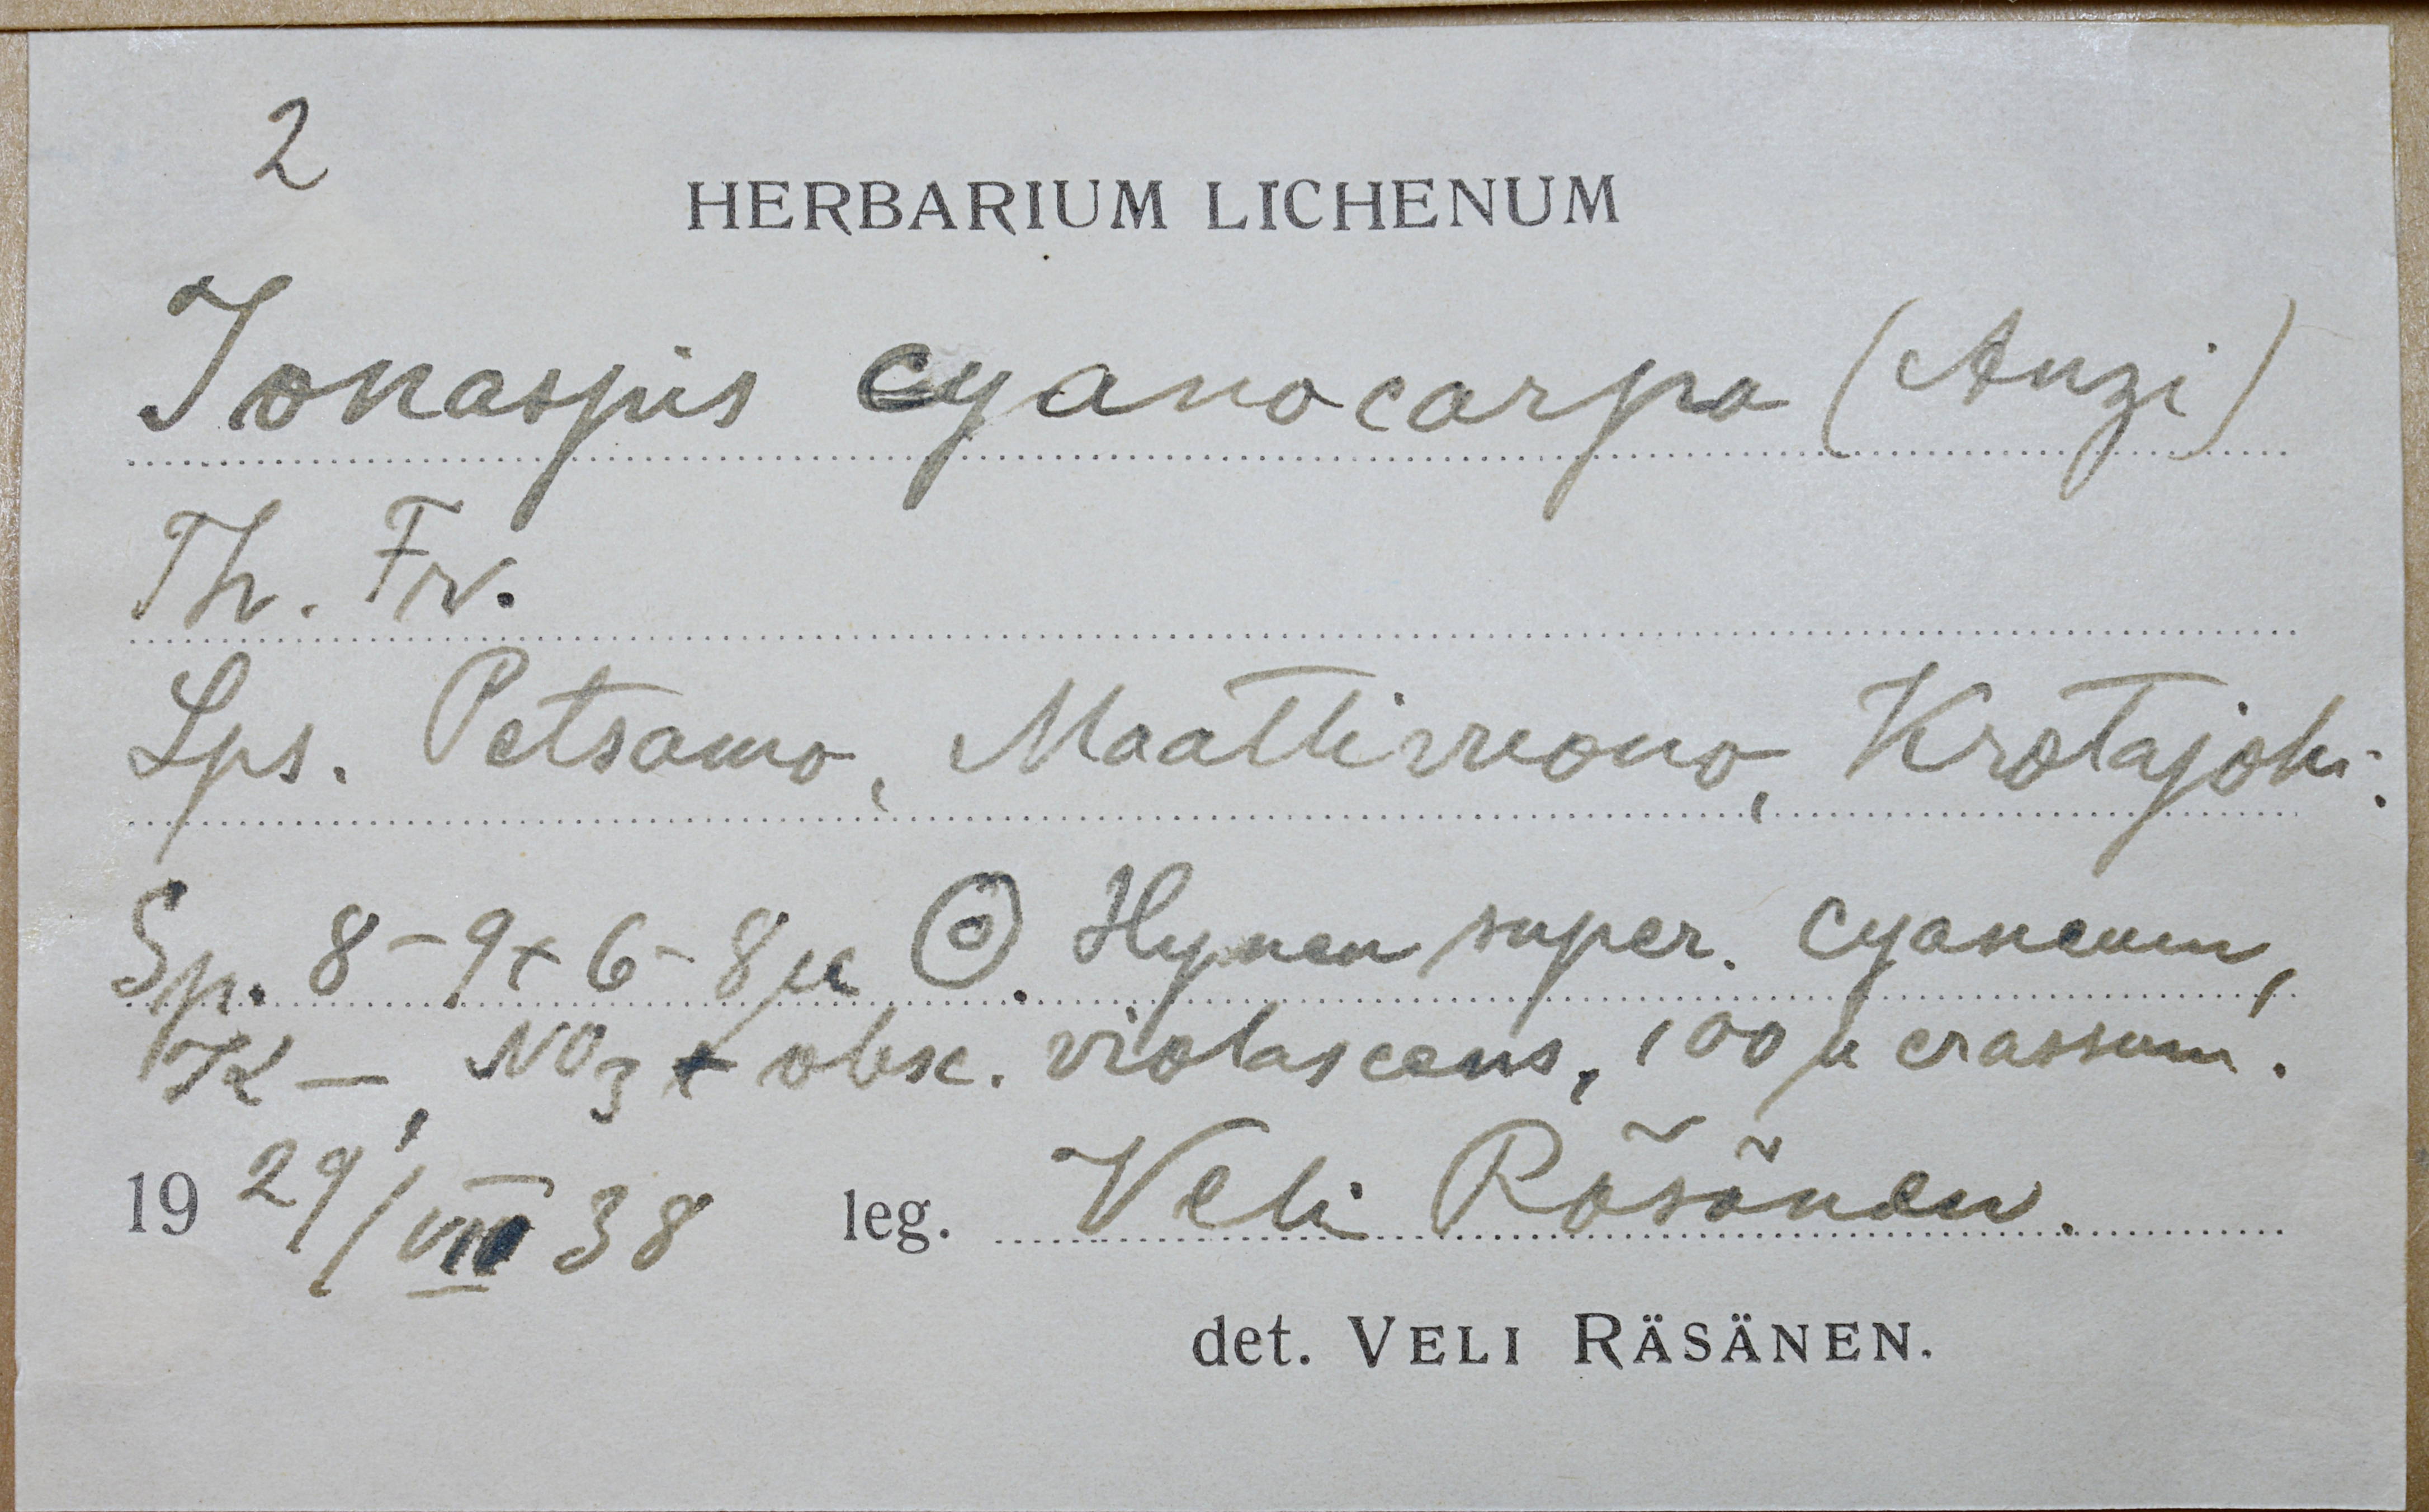 2
HERBARIUM LICHENUM
Ionaspis cyanocarpa (Anzi)
Th. Fr.
Lps. Petsamo, Maattivuono, Krotajoki.
Sp. 8-9 x 6-8 µ Hymen super. cyaneum,
K —, NO3 + obsc. violascens, 100 µ crassum.
19 29/VII 38 leg. Veli Räsänen.
det. VELI RÄSÄNEN.